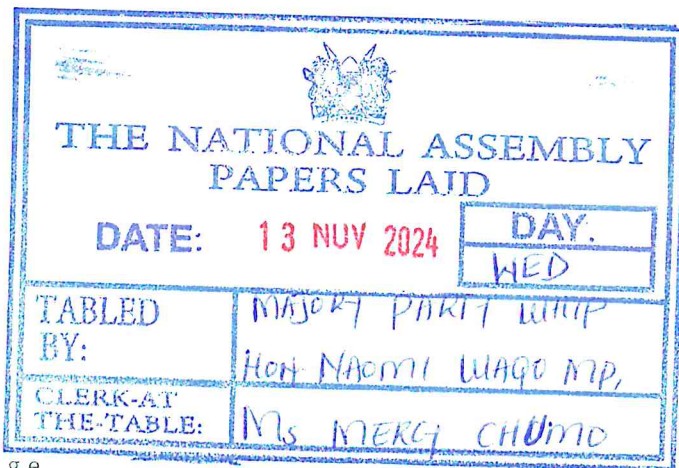 THE NATIONAL ASSEMBLY
PAPERS LAID
DATE: 13 NOV 2024
DAY.
WED
TABLED BY:
MAJORY PARTY WHIP
HON NAOMI WAQO MP,
CLERK-AT THE-TABLE:
Ms MERCY CHUMO
g e